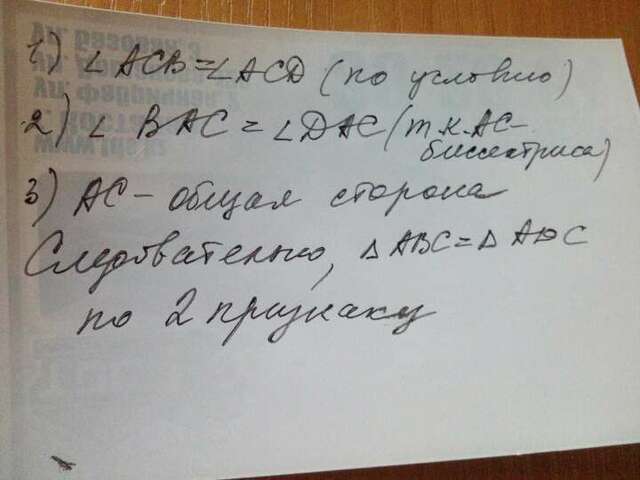 1) ∠ACB=∠ACD (по условию)
2) ∠BAC=∠DAC (т.к. AC-
биссектриса)
3) AC - общая сторона
Следовательно, △ABC=△ADC
по 2 признаку